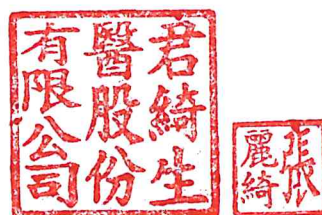 君綺生
醫股份
有限公司
張
麗綺